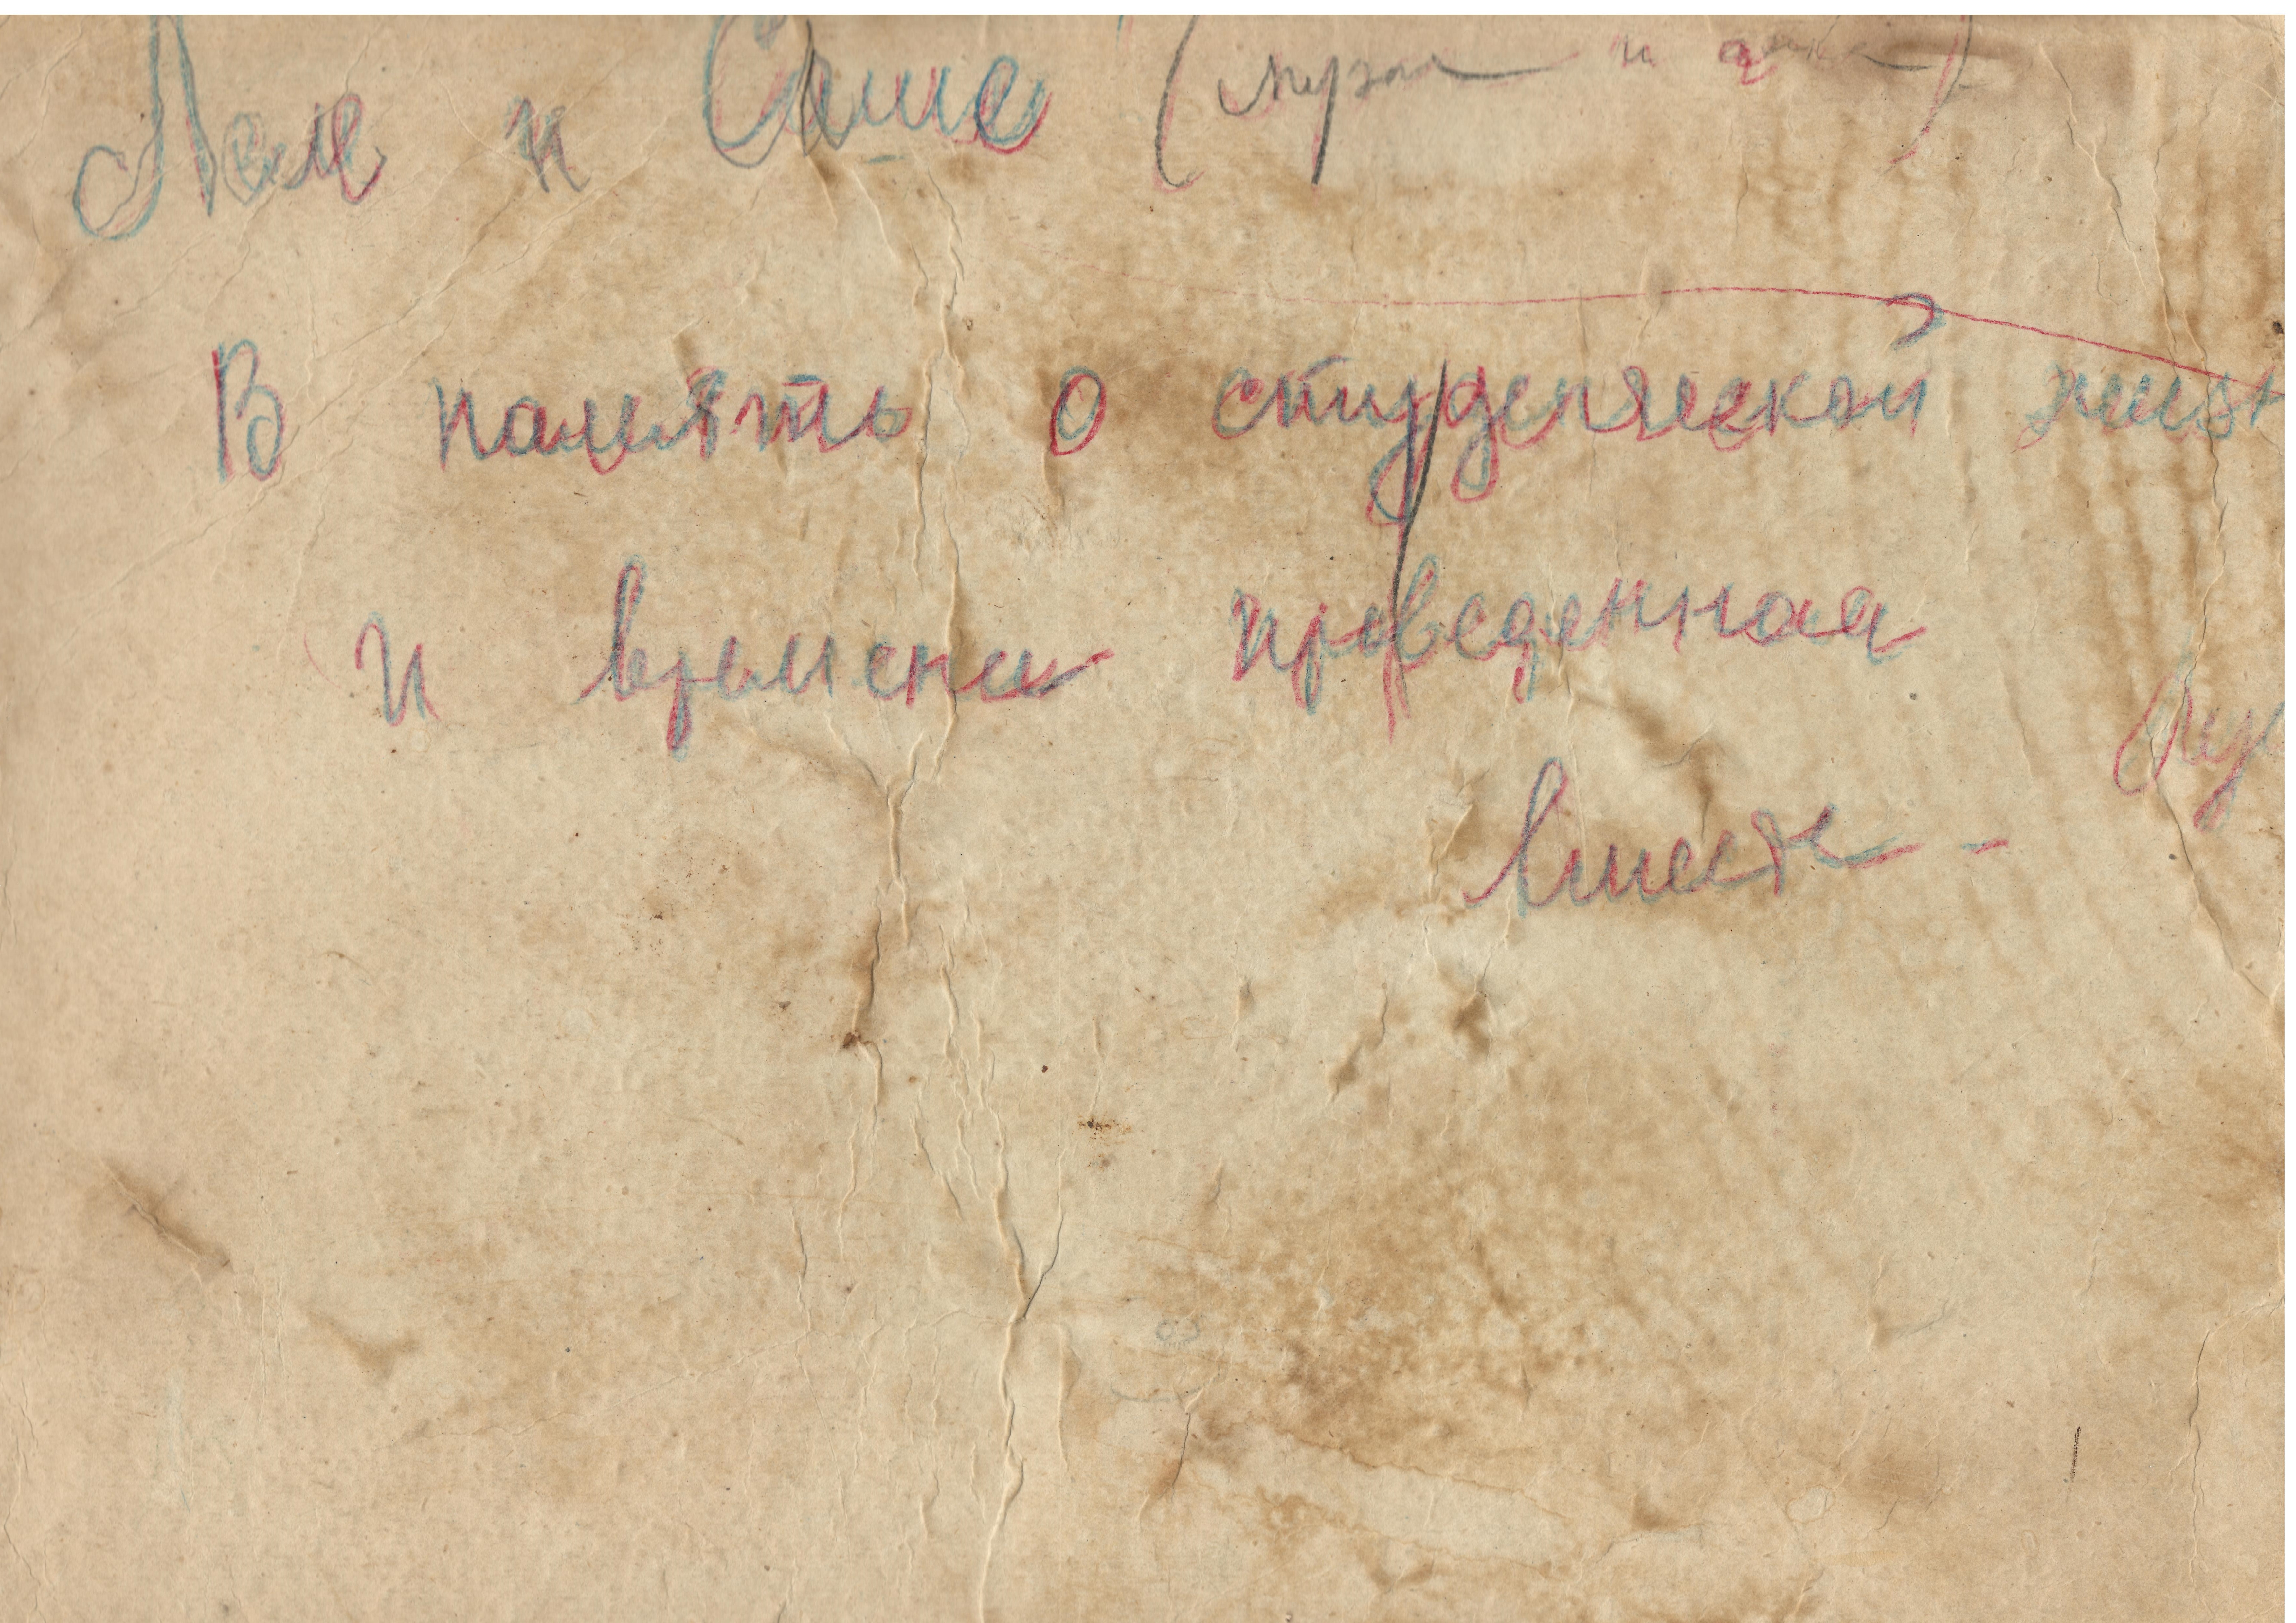 Леле и Саше (муза и
В память о студенческой жизн
и времени проведенная
вместе -